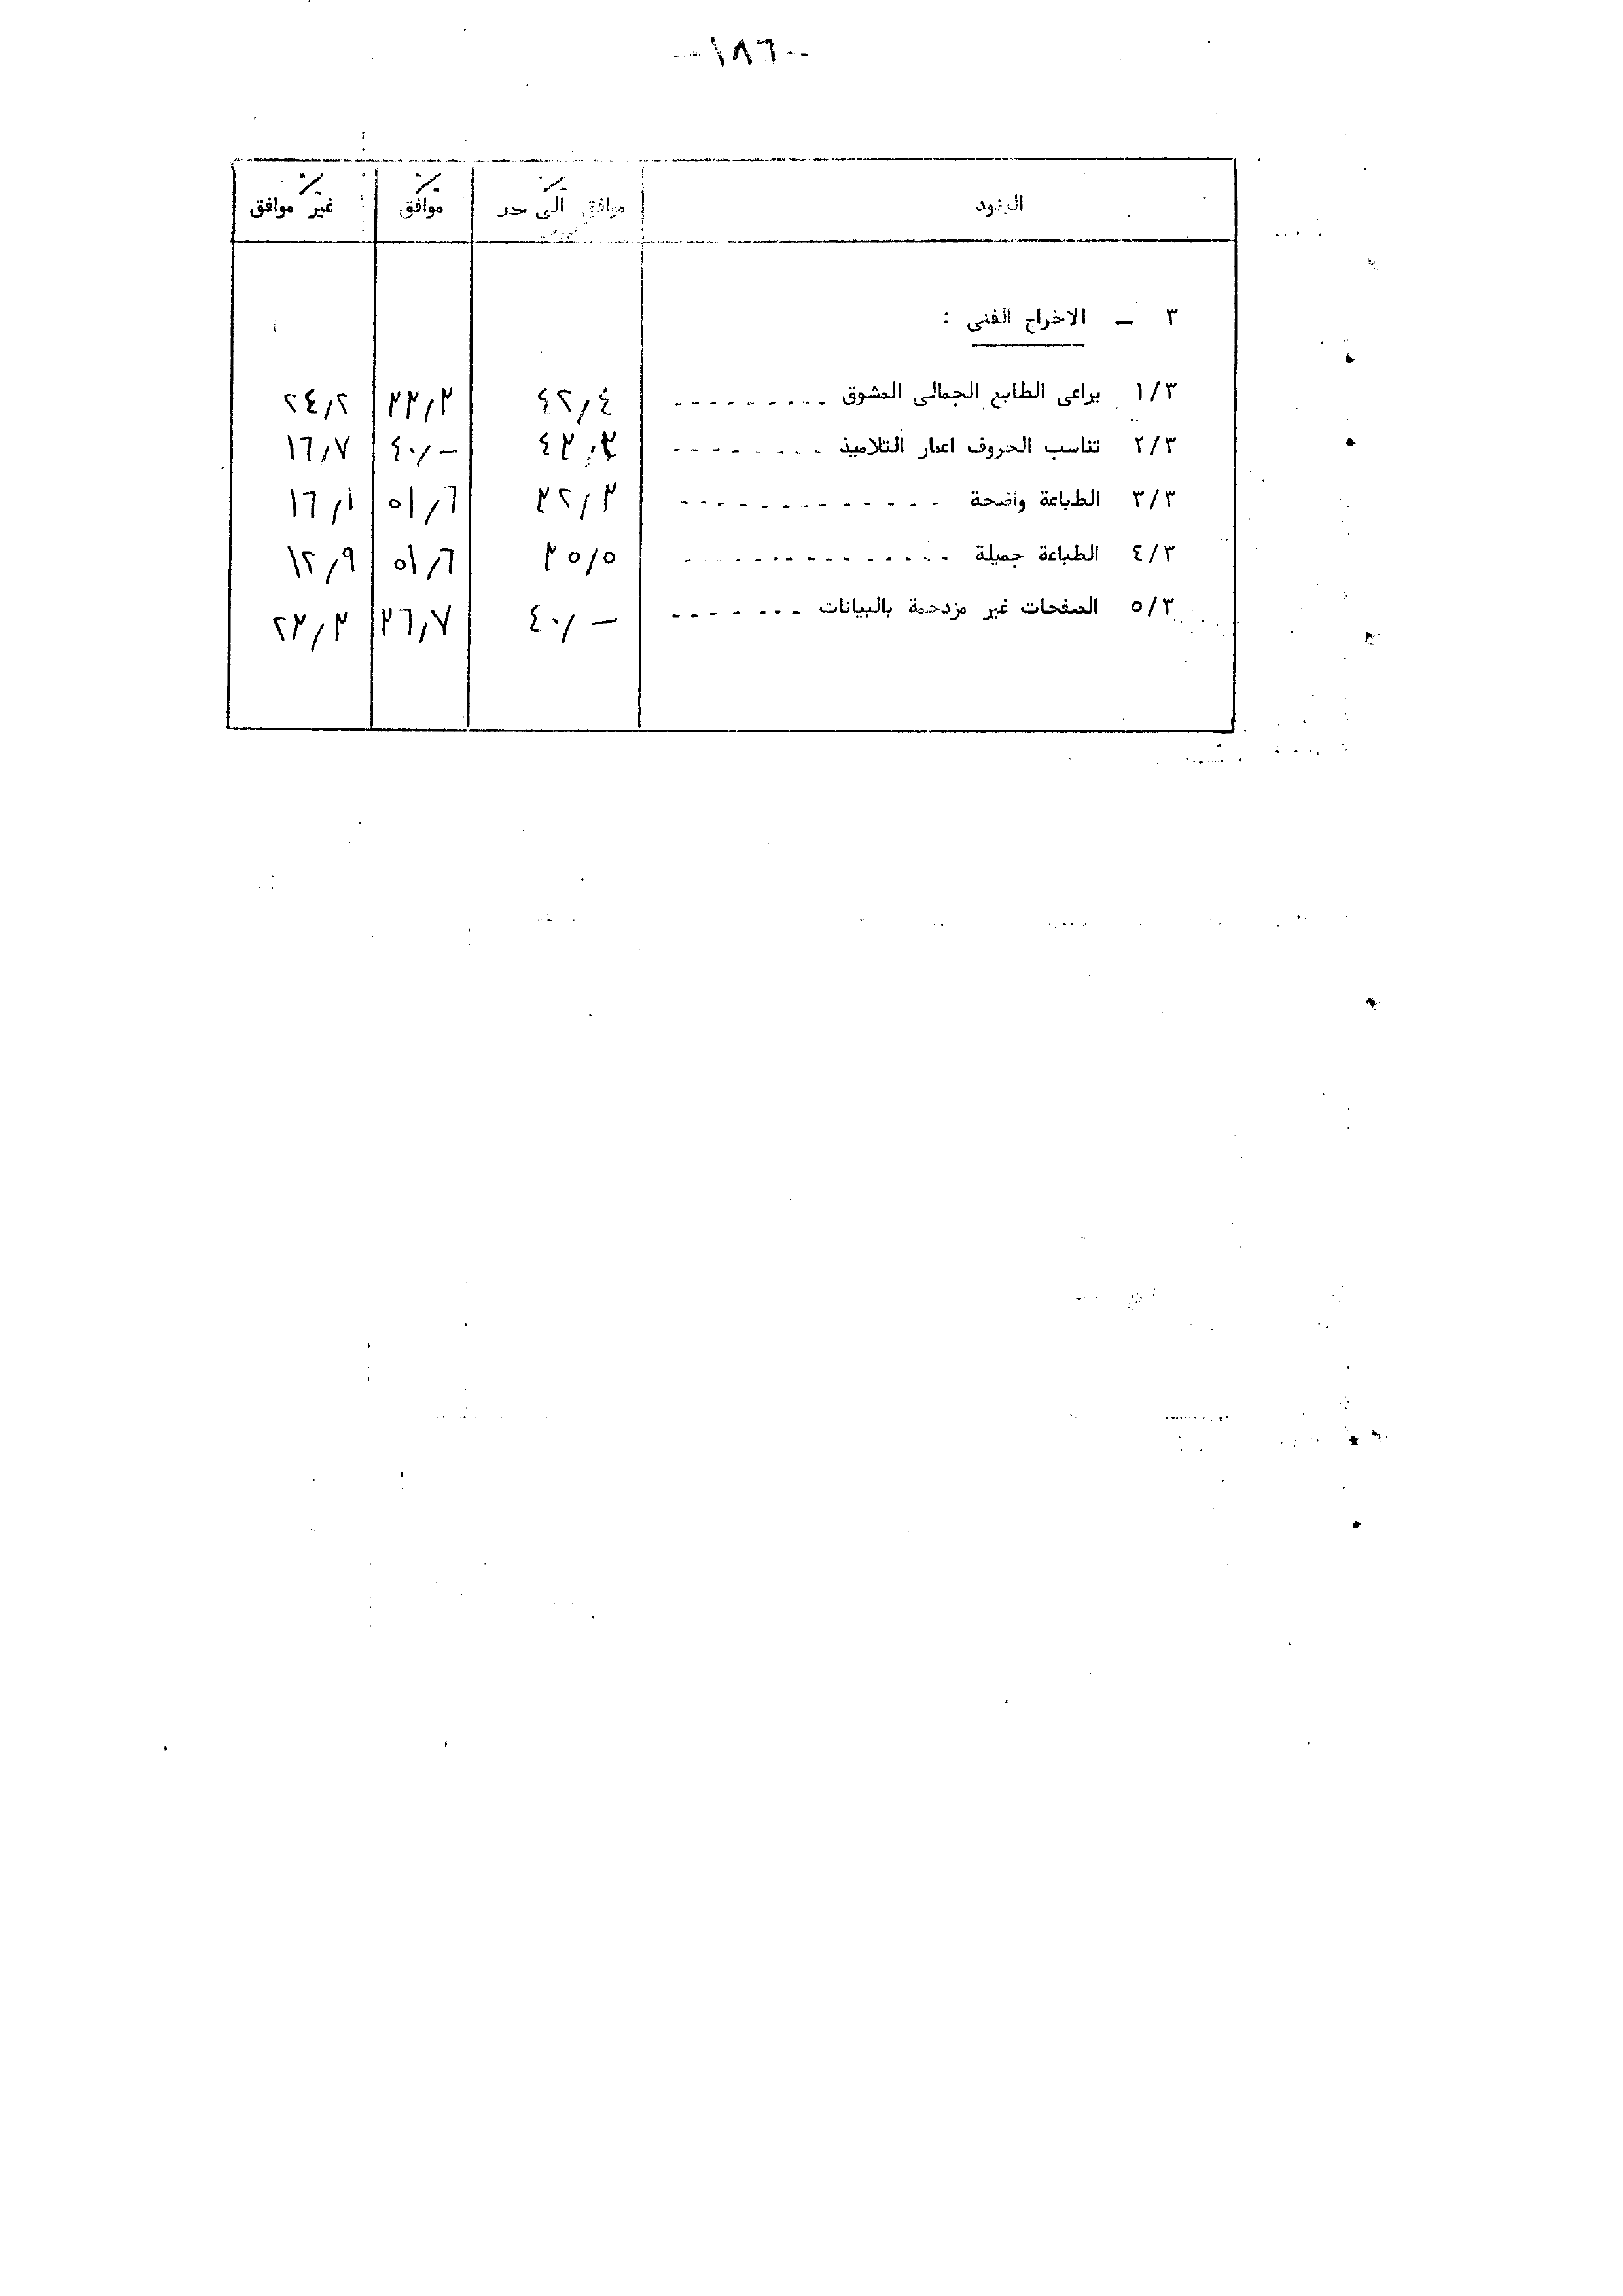 -١٨٦-
٪ ٪ ٪
البنود موافق الى حد موافق غير موافق
٣ - الاخراج الفنى :
١/٣ يراعى الطابع الجمالى المشوق --------- ٤٢٫٤ ٣٣٫٣ ٢٤٫٢
٢/٣ تناسب الحروف اعمار التلاميذ -------- ٤٣٫٣ ٤٠٫- ١٦٫٧
٣/٣ الطباعة واضحة ------------- ٣٢٫٣ ٥١٫٦ ١٦٫١
٤/٣ الطباعة جميلة ------------- ٣٥٫٥ ٥١٫٦ ١٢٫٩
٥/٣ الصفحات غير مزدحمة بالبيانات ------- ٤٠٫- ٣٦٫٧ ٢٣٫٣